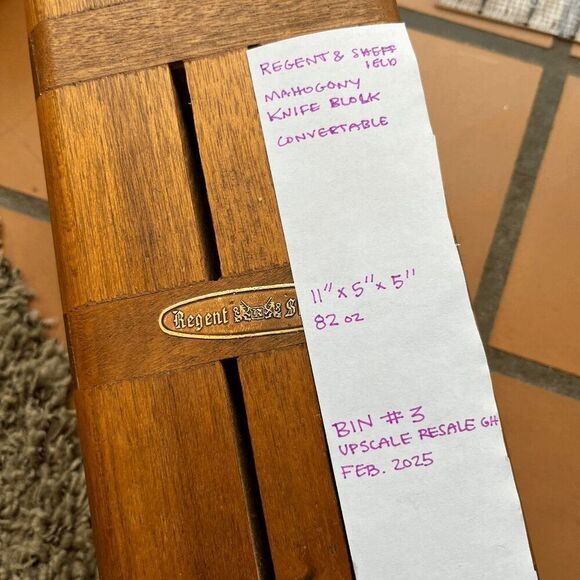 REGENT & SHEFF
IELD
MAHOGONY
KNIFE BLOCK
CONVERTABLE
11" x 5" x 5"
82 oz
Regent
BIN # 3
UPSCALE RESALE GH
FEB. 2025